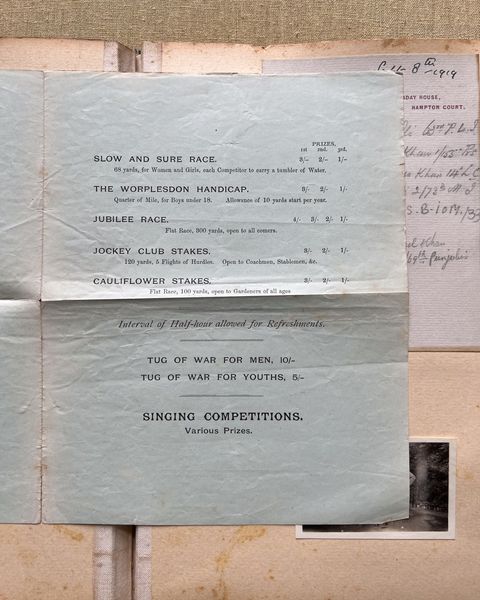 PRIZES.
1st 2nd. 3rd.
SLOW AND SURE RACE. 3/- 2/- 1/-
68 yards, for Women and Girls, each Competitor to carry a tumbler of Water.
THE WORPLESDON HANDICAP. 3/- 2/- 1/-
Quarter of Mile, for Boys under 18. Allowance of 10 yards start per year.
JUBILEE RACE. 4/- 3/- 2/- 1/-
Flat Race, 300 yards, open to all comers.
JOCKEY CLUB STAKES. 3/- 2/- 1/-
120 yards, 5 Flights of Hurdles. Open to Coachmen, Stablemen, &c.
CAULIFLOWER STAKES. 3/- 2/- 1/-
Flat Race, 100 yards, open to Gardeners of all ages
Interval of Half-hour allowed for Refreshments.
TUG OF WAR FOR MEN, 10/-
TUG OF WAR FOR YOUTHS, 5/-
SINGING COMPETITIONS.
Various Prizes.
8th 1919
DAY HOUSE,
HAMPTON COURT.
Khan
Khan
Khan
Punjabis